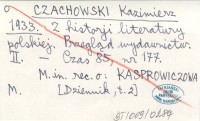 CZACHOWSKI Kazimierz
1933. Z historji literatury
polskiej. Przegląd wydawnictw.
II. — Czas 85, nr 177.
M.in. rec. o: KASPROWICZOWA
M. [Dziennik, t. 2]